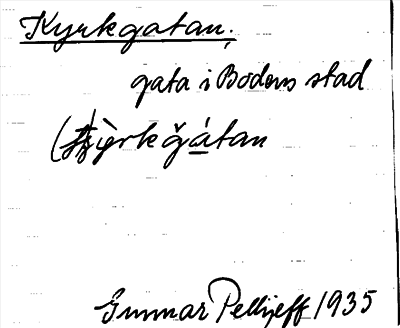 Kyrkgatan,
gata i Bodens stad
Gunnar Pellijeff 1935